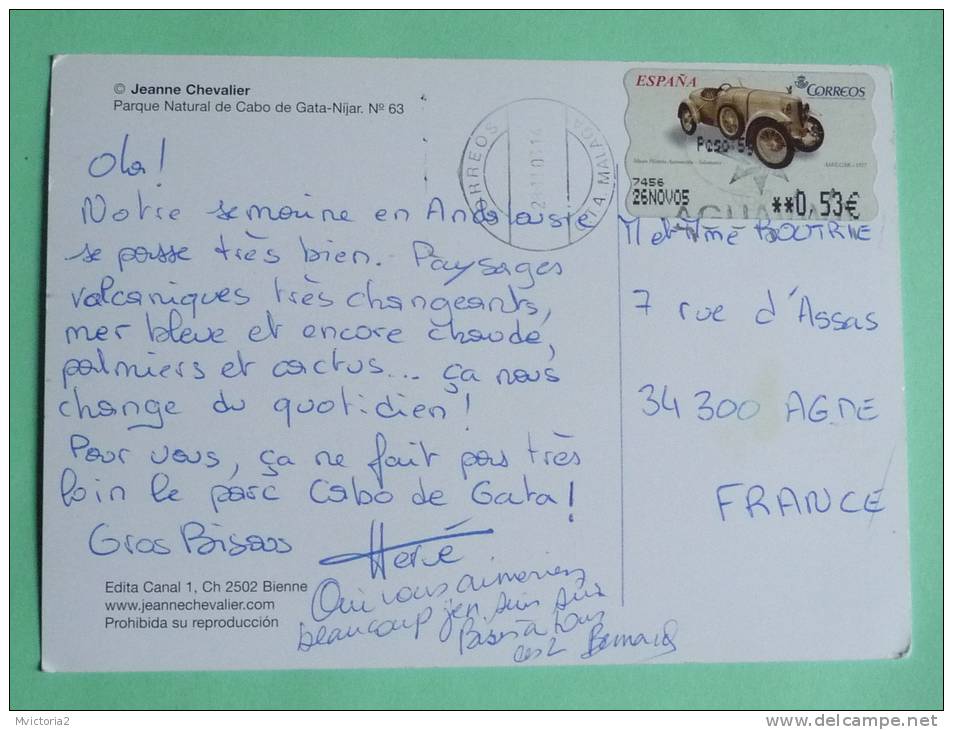 © Jeanne Chevalier
Parque Natural de Cabo de Gata-Níjar. Nº 63
Ola!
Notre semaine en Andalousie
se passe très bien. Paysages
volcaniques très changeants,
mer bleue et encore chaude,
palmiers et cactus... ça nous
change du quotidien!
Pour vous, ça ne fait pas très
loin le parc Cabo de Gata!
Gros Bisous
Hervé
Oui vous aimeriez
beaucoup j'en suis sûr
à tous
les 2 Bernard
Edita Canal 1, Ch 2502 Bienne
www.jeannechevalier.com
Prohibida su reproducción
CORREOS
MALAGA
ESPAÑA
CORREOS
Peso:
7456
26NOV05
**0,53€
M et Mme
7 rue d'Assas
34 300 AGDE
FRANCE
Mvictoria2
delcampe.net